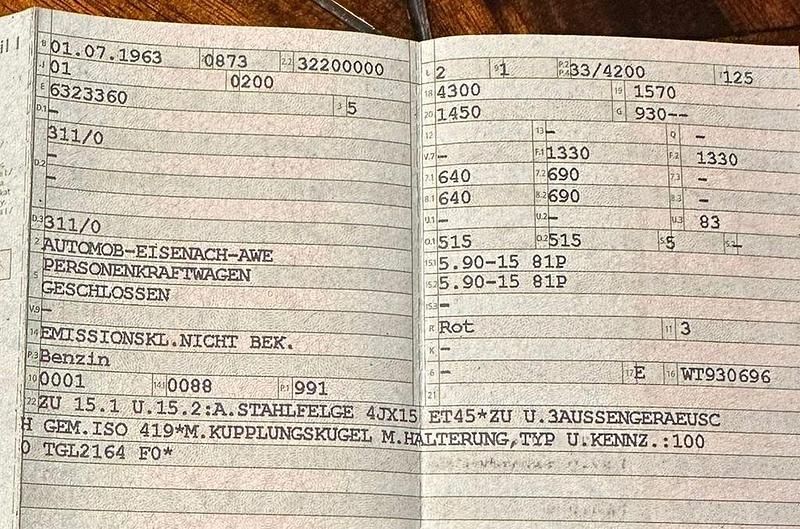 B 01.07.1963 0873 2.2 32200000
J 01 0200
E 6323360 3 5
D.1 -
311/0
D.2 -
-
-
D.3 311/0
2 AUTOMOB-EISENACH-AWE
5 PERSONENKRAFTWAGEN
GESCHLOSSEN
V.9 -
14 EMISSIONSKL.NICHT BEK.
P.3 Benzin
10 0001 14.1 0088 P.1 991
L 2 9 1 P.2 P.4 33/4200 T 125
18 4300 19 1570
20 1450 G 930--
12 - 13 - Q -
V.7 - F.1 1330 F.2 1330
7.1 640 7.2 690 7.3 -
8.1 640 8.2 690 8.3 -
U.1 - U.2 - U.3 83
O.1 515 O.2 515 S.1 5 S.2 -
15.1 5.90-15 81P
15.2 5.90-15 81P
15.3 -
R Rot 11 3
K -
6 - 17 E 16 WT930696
21
22 ZU 15.1 U.15.2:A.STAHLFELGE 4JX15 ET45*ZU U.3AUSSENGERAEUSC
H GEM.ISO 419*M.KUPPLUNGSKUGEL M.HALTERUNG,TYP U.KENNZ.:100
TGL2164 F0*